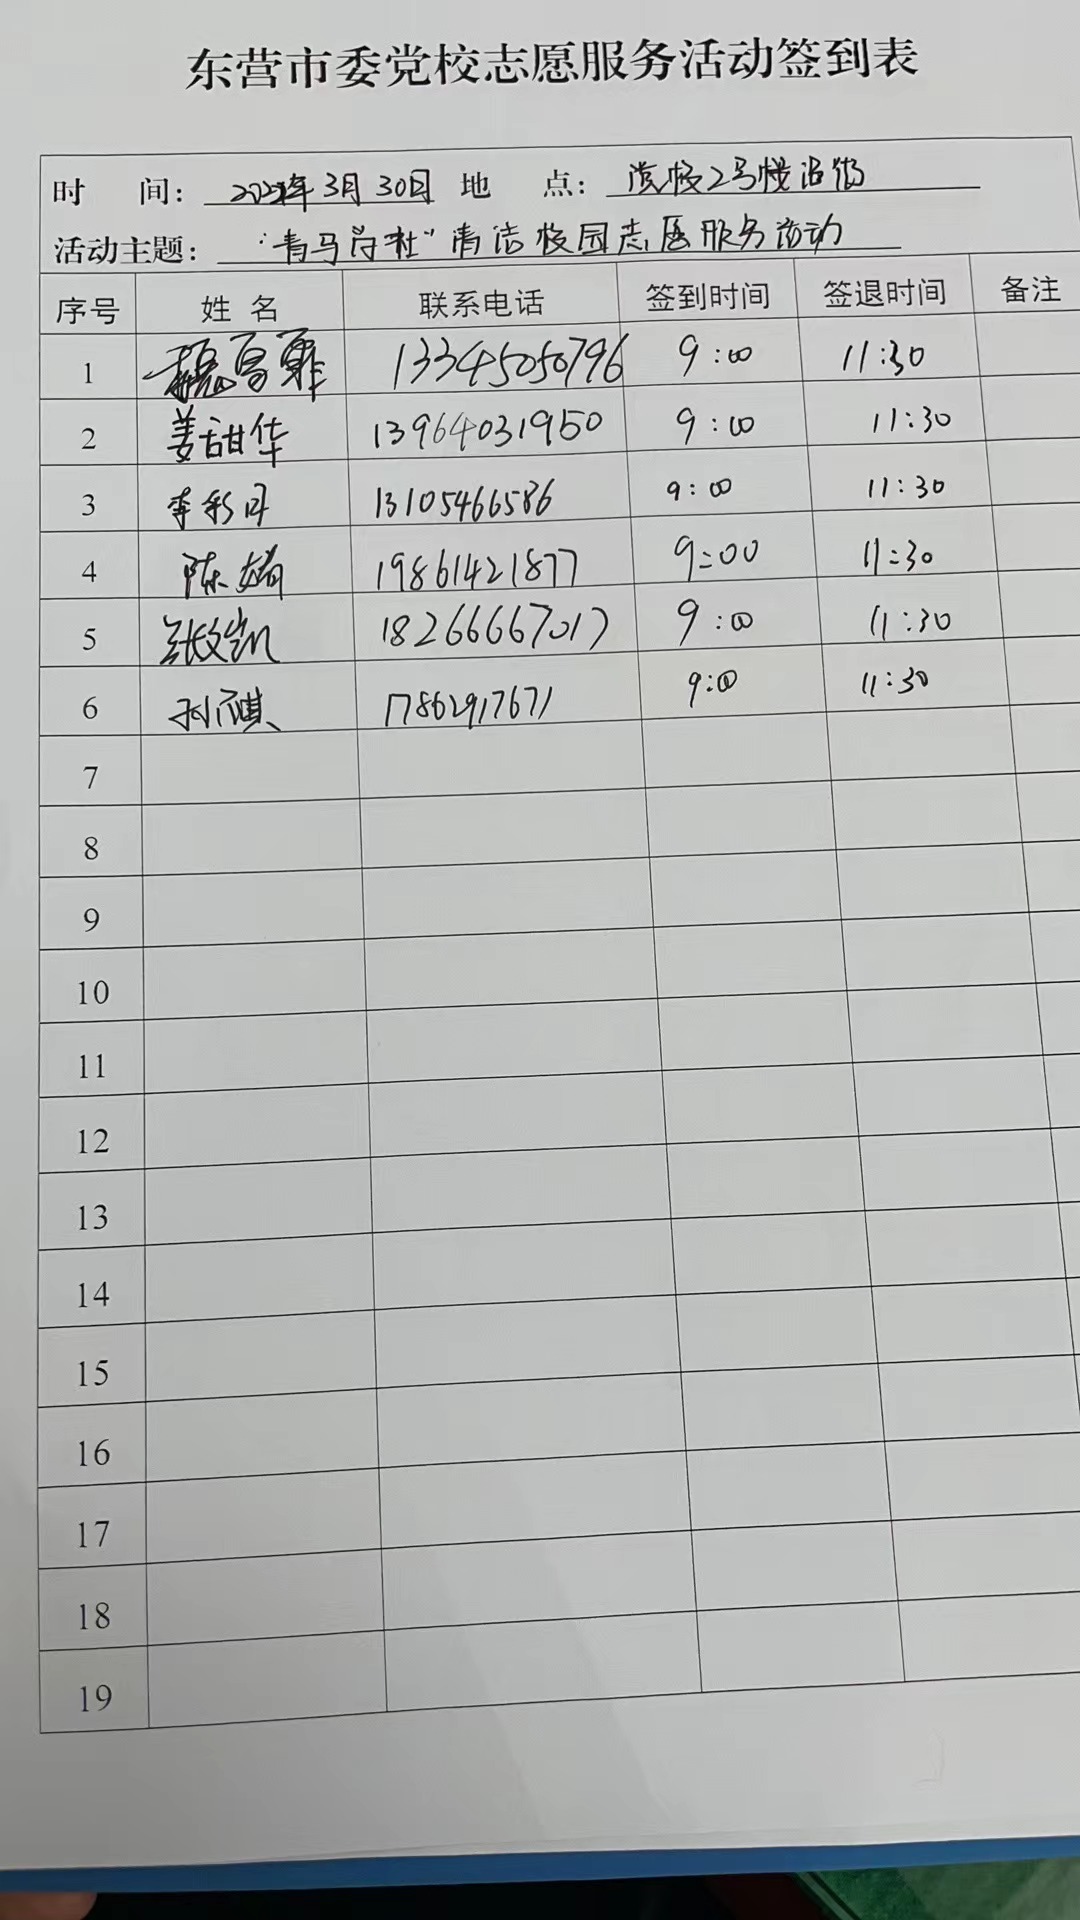 东营市委党校志愿服务活动签到表
时 间: 3月30日 地 点: 党校2号楼沿街
活动主题: “青马学社”清洁校园志愿服务活动
序号 姓名 联系电话 签到时间 签退时间 备注
1 13345050796 9:00 11:30
2 姜甜华 13964031950 9:00 11:30
3 李彩月 13105466586 9:00 11:30
4 陈婧 19861421877 9:00 11:30
5 张文凯 18266667017 9:00 11:30
6 孙祺 17862917671 9:00 11:30
7
8
9
10
11
12
13
14
15
16
17
18
19